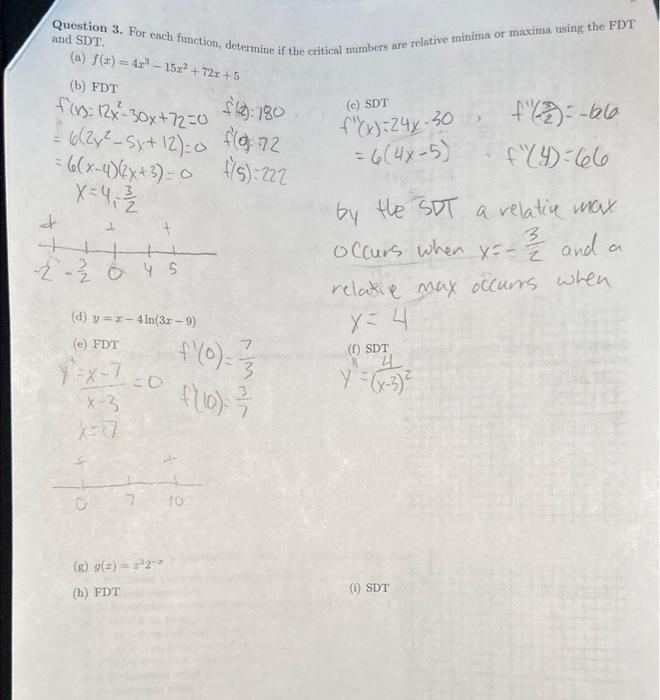 Question 3. For each function, determine if the critical numbers are relative minima or maxima using the FDT
and SDT.
(a) f(x) = 4x³ − 15x² + 72x + 5
(b) FDT
f'(x) = 12x² - 30x + 72 = 0
= 6(2x² - 5x + 12) = 0
= 6(x-4)(2x+3) = 0
x = 4, -3/2
f'(2) = 180
f'(0) = 72
f'(5) = 222
+ + +
-2 -3/2 0 4 5
(c) SDT
f''(x) = 24x - 30 , f''(-3/2) = -66
= 6(4x-5) . f''(4) = 66
by the SDT a relative max
occurs when x = -3/2 and a
relative max occurs when
x = 4
(d) y = x − 4 ln(3x − 9)
(e) FDT
y' = x-7/x-3 = 0
x = 7
f'(0) = 7/3
f'(10) = 3/7
+ +
0 7 10
(f) SDT
y'' = 4/(x-3)²
(g) g(x) = x²2⁻ˣ
(h) FDT
(i) SDT